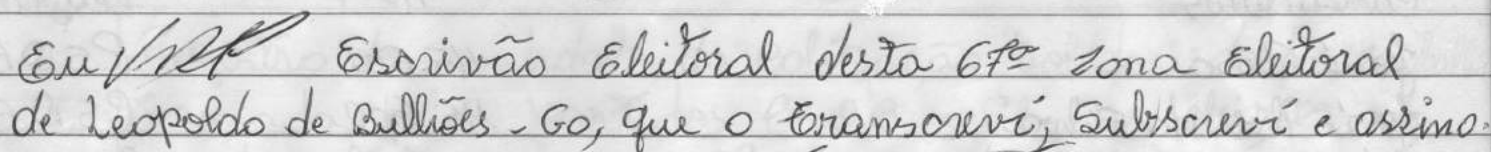 Eu Escrivão Eleitoral desta 67ª Zona Eleitoral
de Leopoldo de Bulhões - Go, que o transcrevi, Subscrevi e assino.